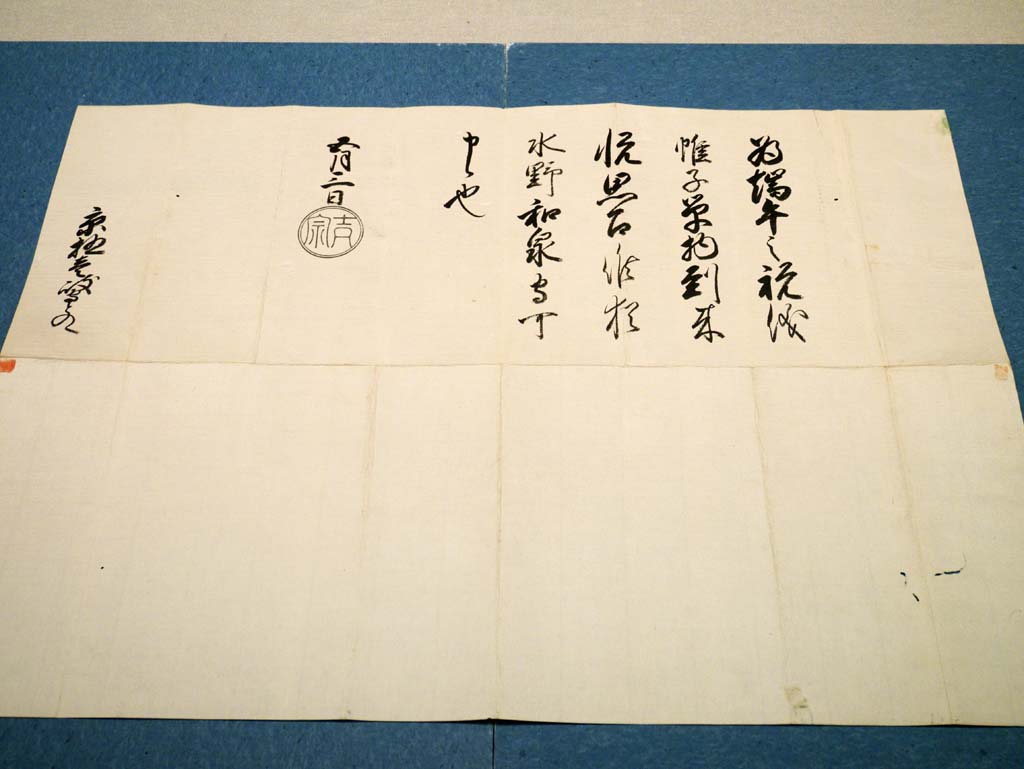 為端午之祝儀
帷子単物到来
悦思召候猶
水野和泉守可
申也
五月三日
吉宗
京極